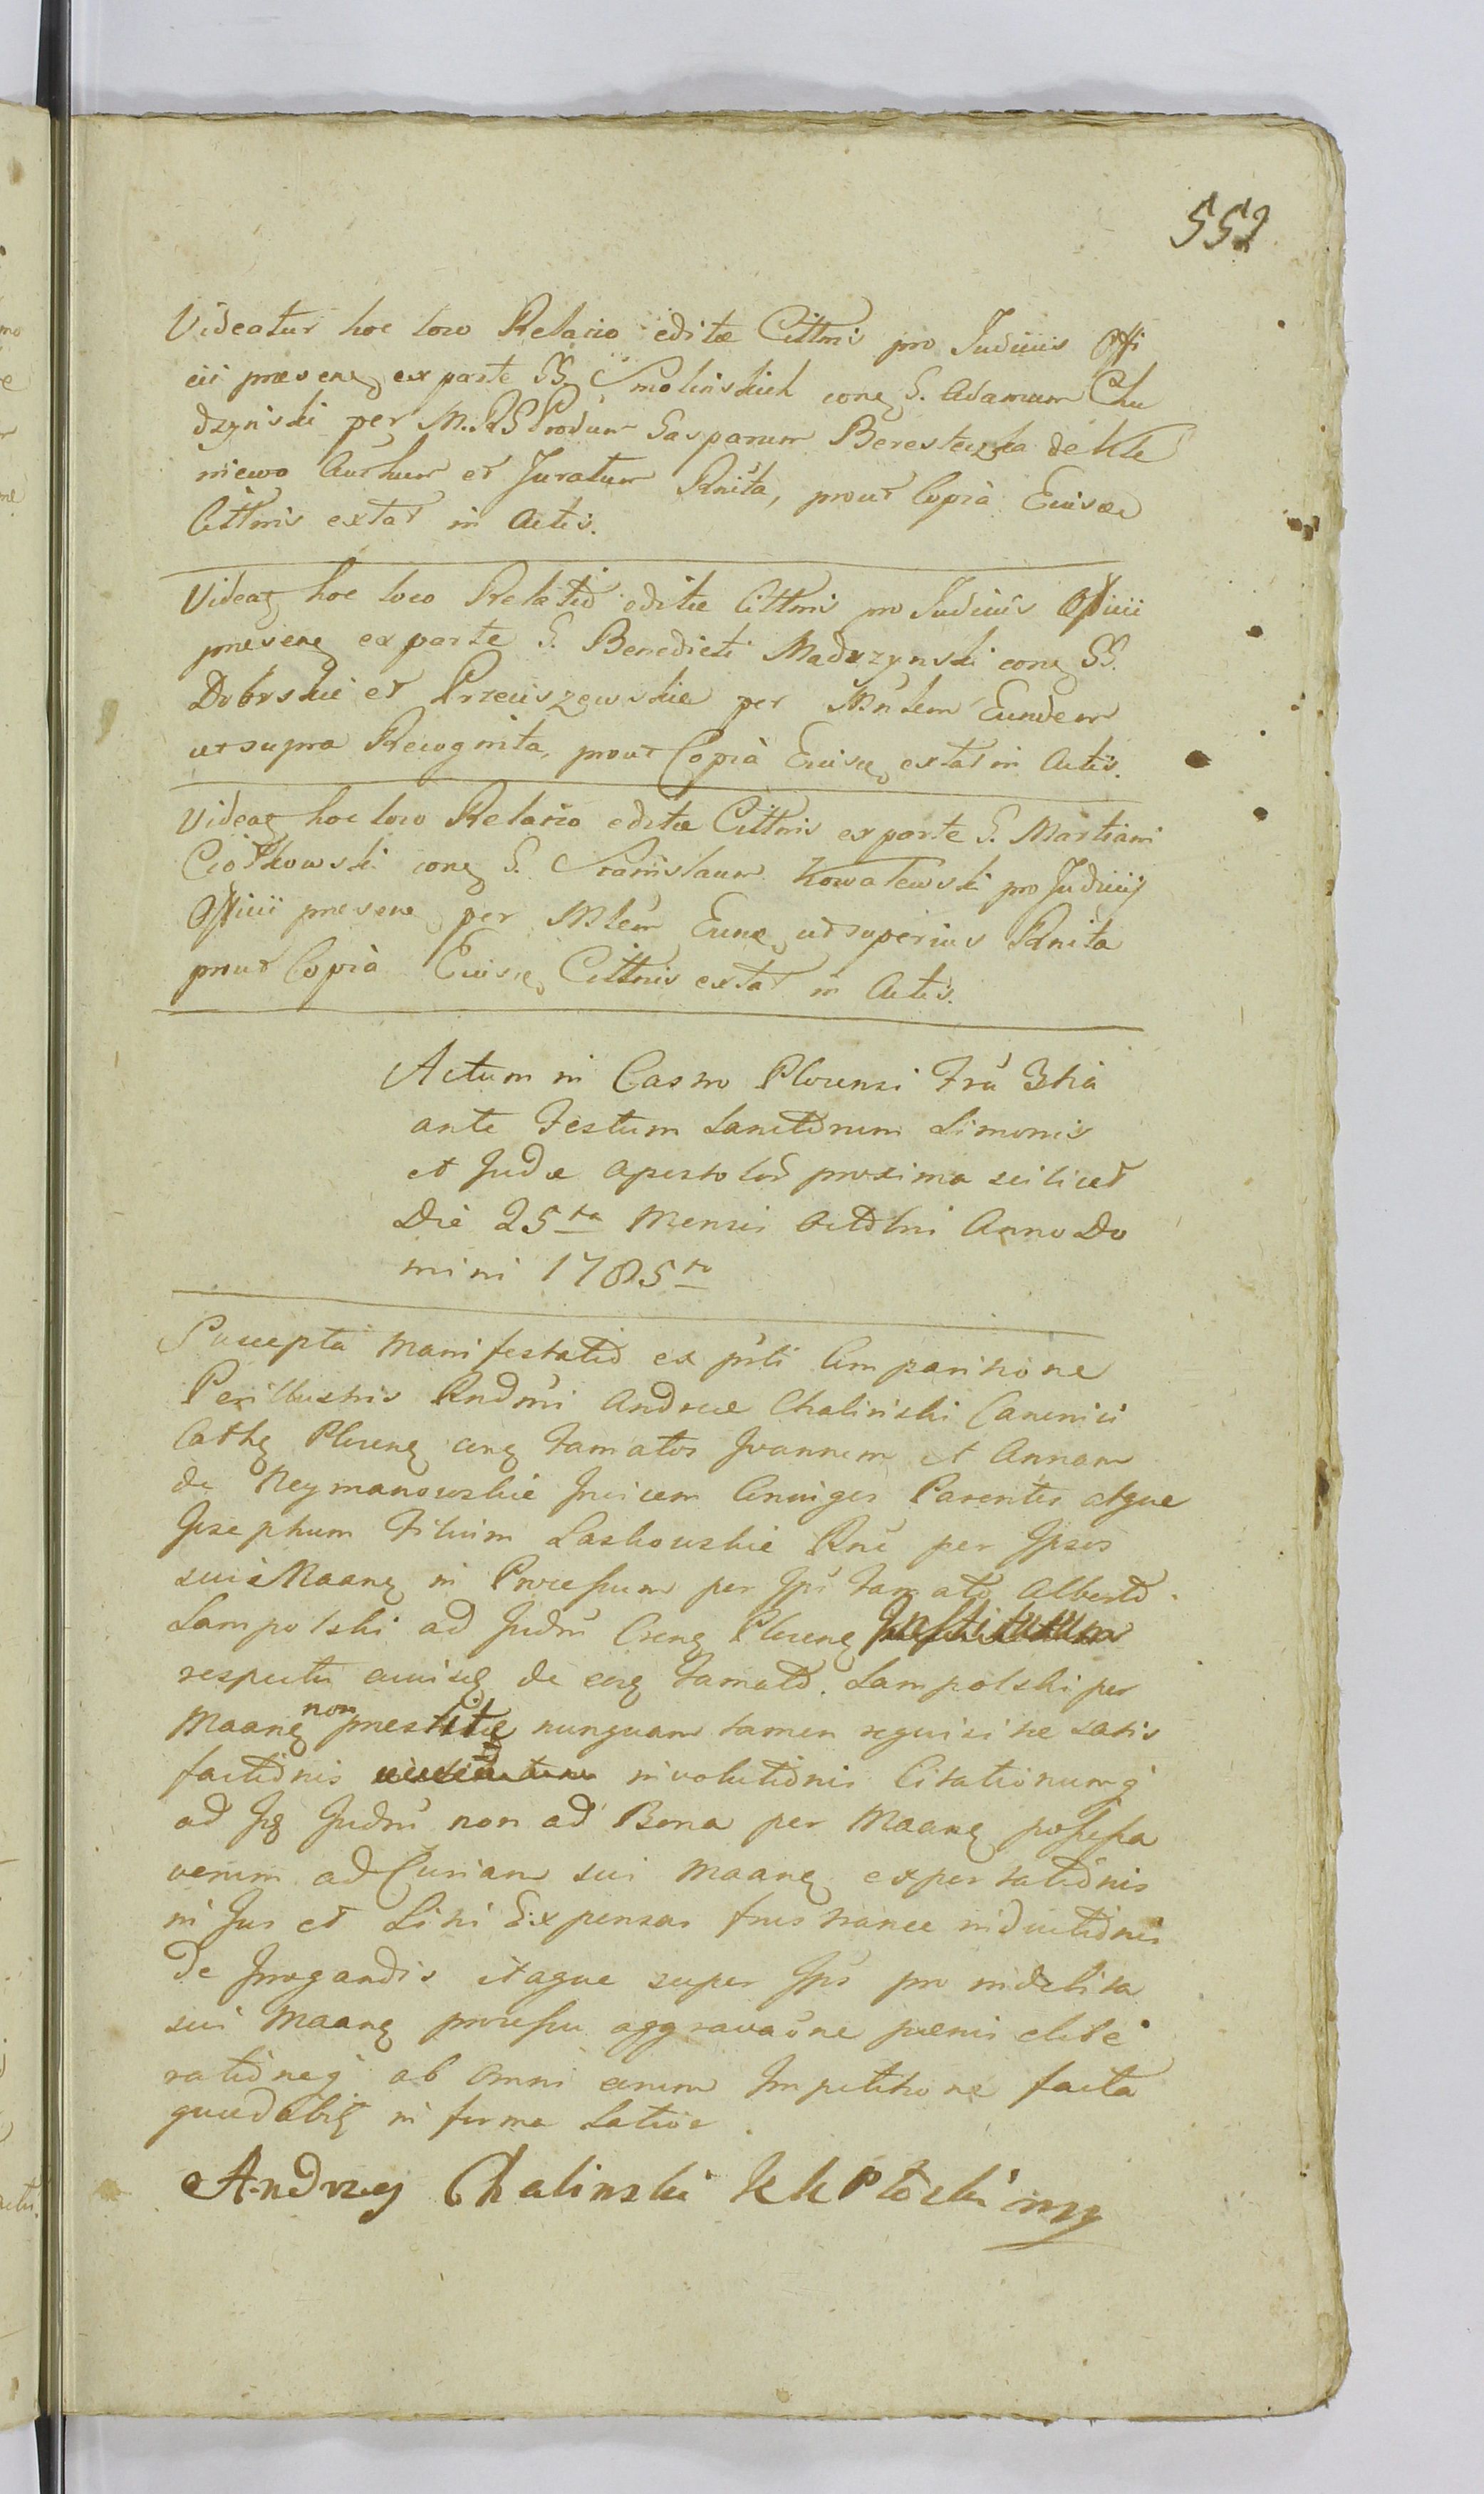 552
Videatur hoc loco Relacio editæ Cittnis pro Judiciis Offi
cii præsenę ex parte SS. Smolinskich conę G. Adamum Chu
dzynski per M. Gasparum Beresteczka de Kle
niewo Authum et Juratum Rnita, prout Copià Eiusdę
Cittnis extat in Actis.
Videaę hoc loco Relatio editæ Cittnis pro Judiciis Officii
præsenę ex parte G. Benedicti Madrzynski conę GG.
Dobrskie et Przeciszewskie per Mnlem Eundem
ut supra Recognita, prout Copià Eiusdę extat in Actis.
Videaę hoc loco Relacio editæ Cittnis ex parte G. Martiani
Ciołkowski conę G. Stanislaum Kowalewski pro Judiciis
Officii præsenę per Mlem Eunę ut superius Rnita
prout Copià Eiusdę Cittnis extat in Actis.
Actum in Castro Plocensi Fra 3tia
ante Festum Sanctorum Simonis
et Judæ Apostolor proxima scilicet
Die 25ta Mensis Octobris Anno Do
mini 1785to
Suscepta Manifestatio ex psti Comparitione
Perillustris Rndmi Andreæ Chalinski Canonici
Cathę Plocenę conę Famatos Joannem et Annam
de Neymanowskie Invicem Conjuges Parentes atque
Josephum Filium Laskowskie Rne per Ipsos
sui Maanę in Processum per Ips Famato Alberto
Lampolski ad Judm Plocenę
respectu de eoę Famato. Lampolski per
Maanę non præstitæ nunquam tamen requisitæ satis
factionis involutionis Citationumq
ad Judm non ad Bona per Maanę possessa
verum ad Curiam sui Maanę exportationis
in Jus et Litis Expensas frustranee inductionis
de Irrogandis itaque super Ips pro indebita
sui Maanę processu aggravaone pœnis elibe
rationeq ab omni eorum Impetitione facta
in forma Latior.
Andrzey Chalinski KK Płocki mp